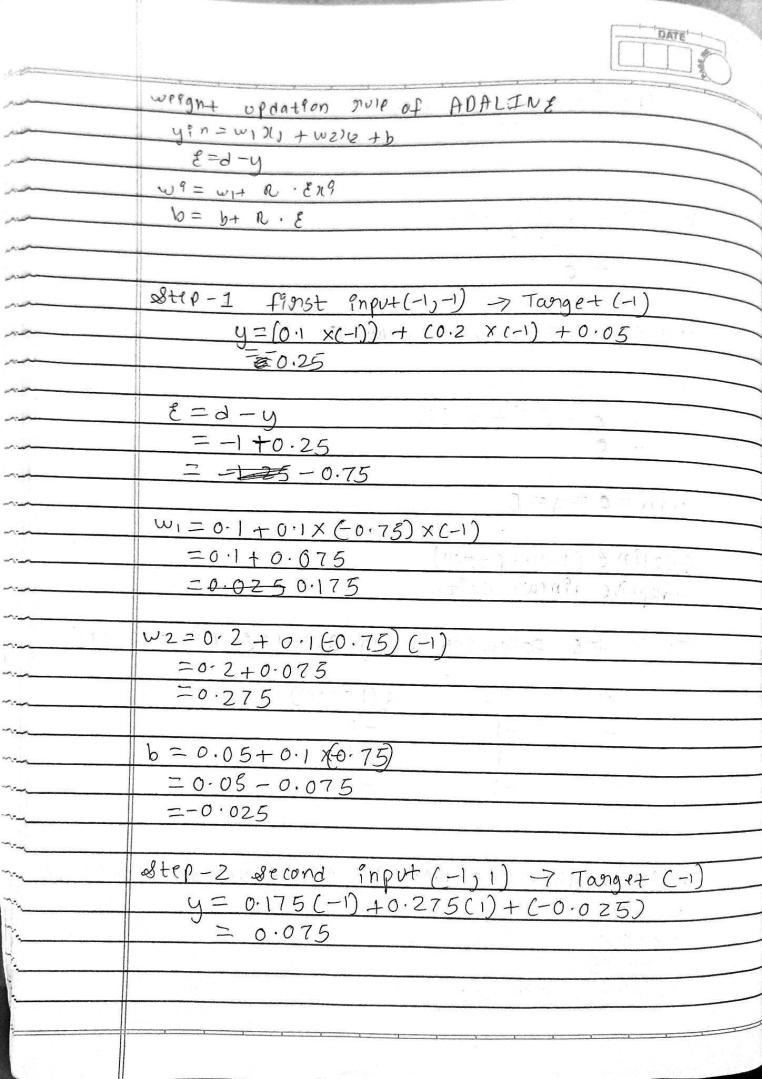 DATE
weignt updation rule of ADALINE
yin = w1x1 + w2x2 + b
ε = d - y
wi = wi+ η . εxi
b = b+ η . ε
Step-1 first input (-1,-1) → Target (-1)
y = (0.1 x(-1)) + (0.2 x (-1) + 0.05
= -0.25
ε = d - y
= -1 +0.25
= -0.75
w1 = 0.1 + 0.1 x (-0.75) x (-1)
= 0.1 + 0.075
= 0.175
w2 = 0.2 + 0.1 (-0.75) (-1)
= 0.2 + 0.075
= 0.275
b = 0.05 + 0.1 x(-0.75)
= 0.05 - 0.075
= -0.025
Step-2 second input (-1,1) → Target (-1)
y = 0.175 (-1) + 0.275 (1) + (-0.025)
= 0.075